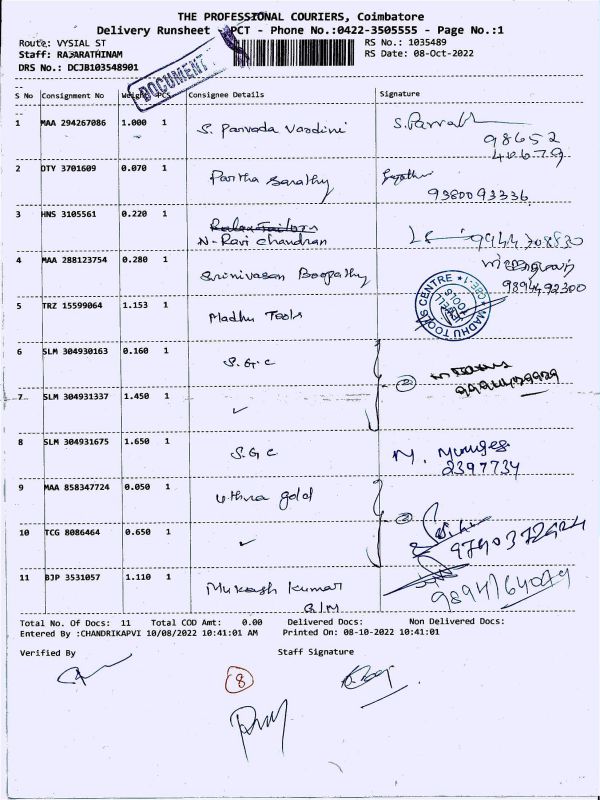 THE PROFESSIONAL COURIERS, Coimbatore
Delivery Runsheet PCT - Phone No.:0422-3505555 - Page No.:1
Route: VYSIAL ST RS No.: 1035489
Staff: RAJARATHINAM RS Date: 08-Oct-2022
DRS No.: DCJB103548901
DOCUMENT
S No Consignment No Weight PCS Consignee Details Signature
1 MAA 294267086 1.000 1 S. Parvada Vardini
98652
40679
2 DTY 3701609 0.070 1 Partha Sarathy
9380093336
3 HNS 3105561 0.220 1
N-Ravi chandran 9944708830
4 MAA 288123754 0.280 1 Srinivasan Boopathy
9894492300
5 TRZ 15599064 1.153 1 Madhu Tools
MADHU TOOLS CENTRE * CBE-1 *
6 SLM 304930163 0.160 1 S.G.C
2
7 SLM 304931337 1.450 1 ✓
8 SLM 304931675 1.650 1 S.G.C M. Muruges.
2397734
9 MAA 858347724 0.050 1 uthra gold
2
10 TCG 8086464 0.650 1 ✓
11 BJP 3531057 1.110 1 Mukesh Kumar
G/M
Total No. Of Docs: 11 Total COD Amt: 0.00 Delivered Docs: Non Delivered Docs:
Entered By :CHANDRIKAPVI 10/08/2022 10:41:01 AM Printed On: 08-10-2022 10:41:01
Verified By Staff Signature
8